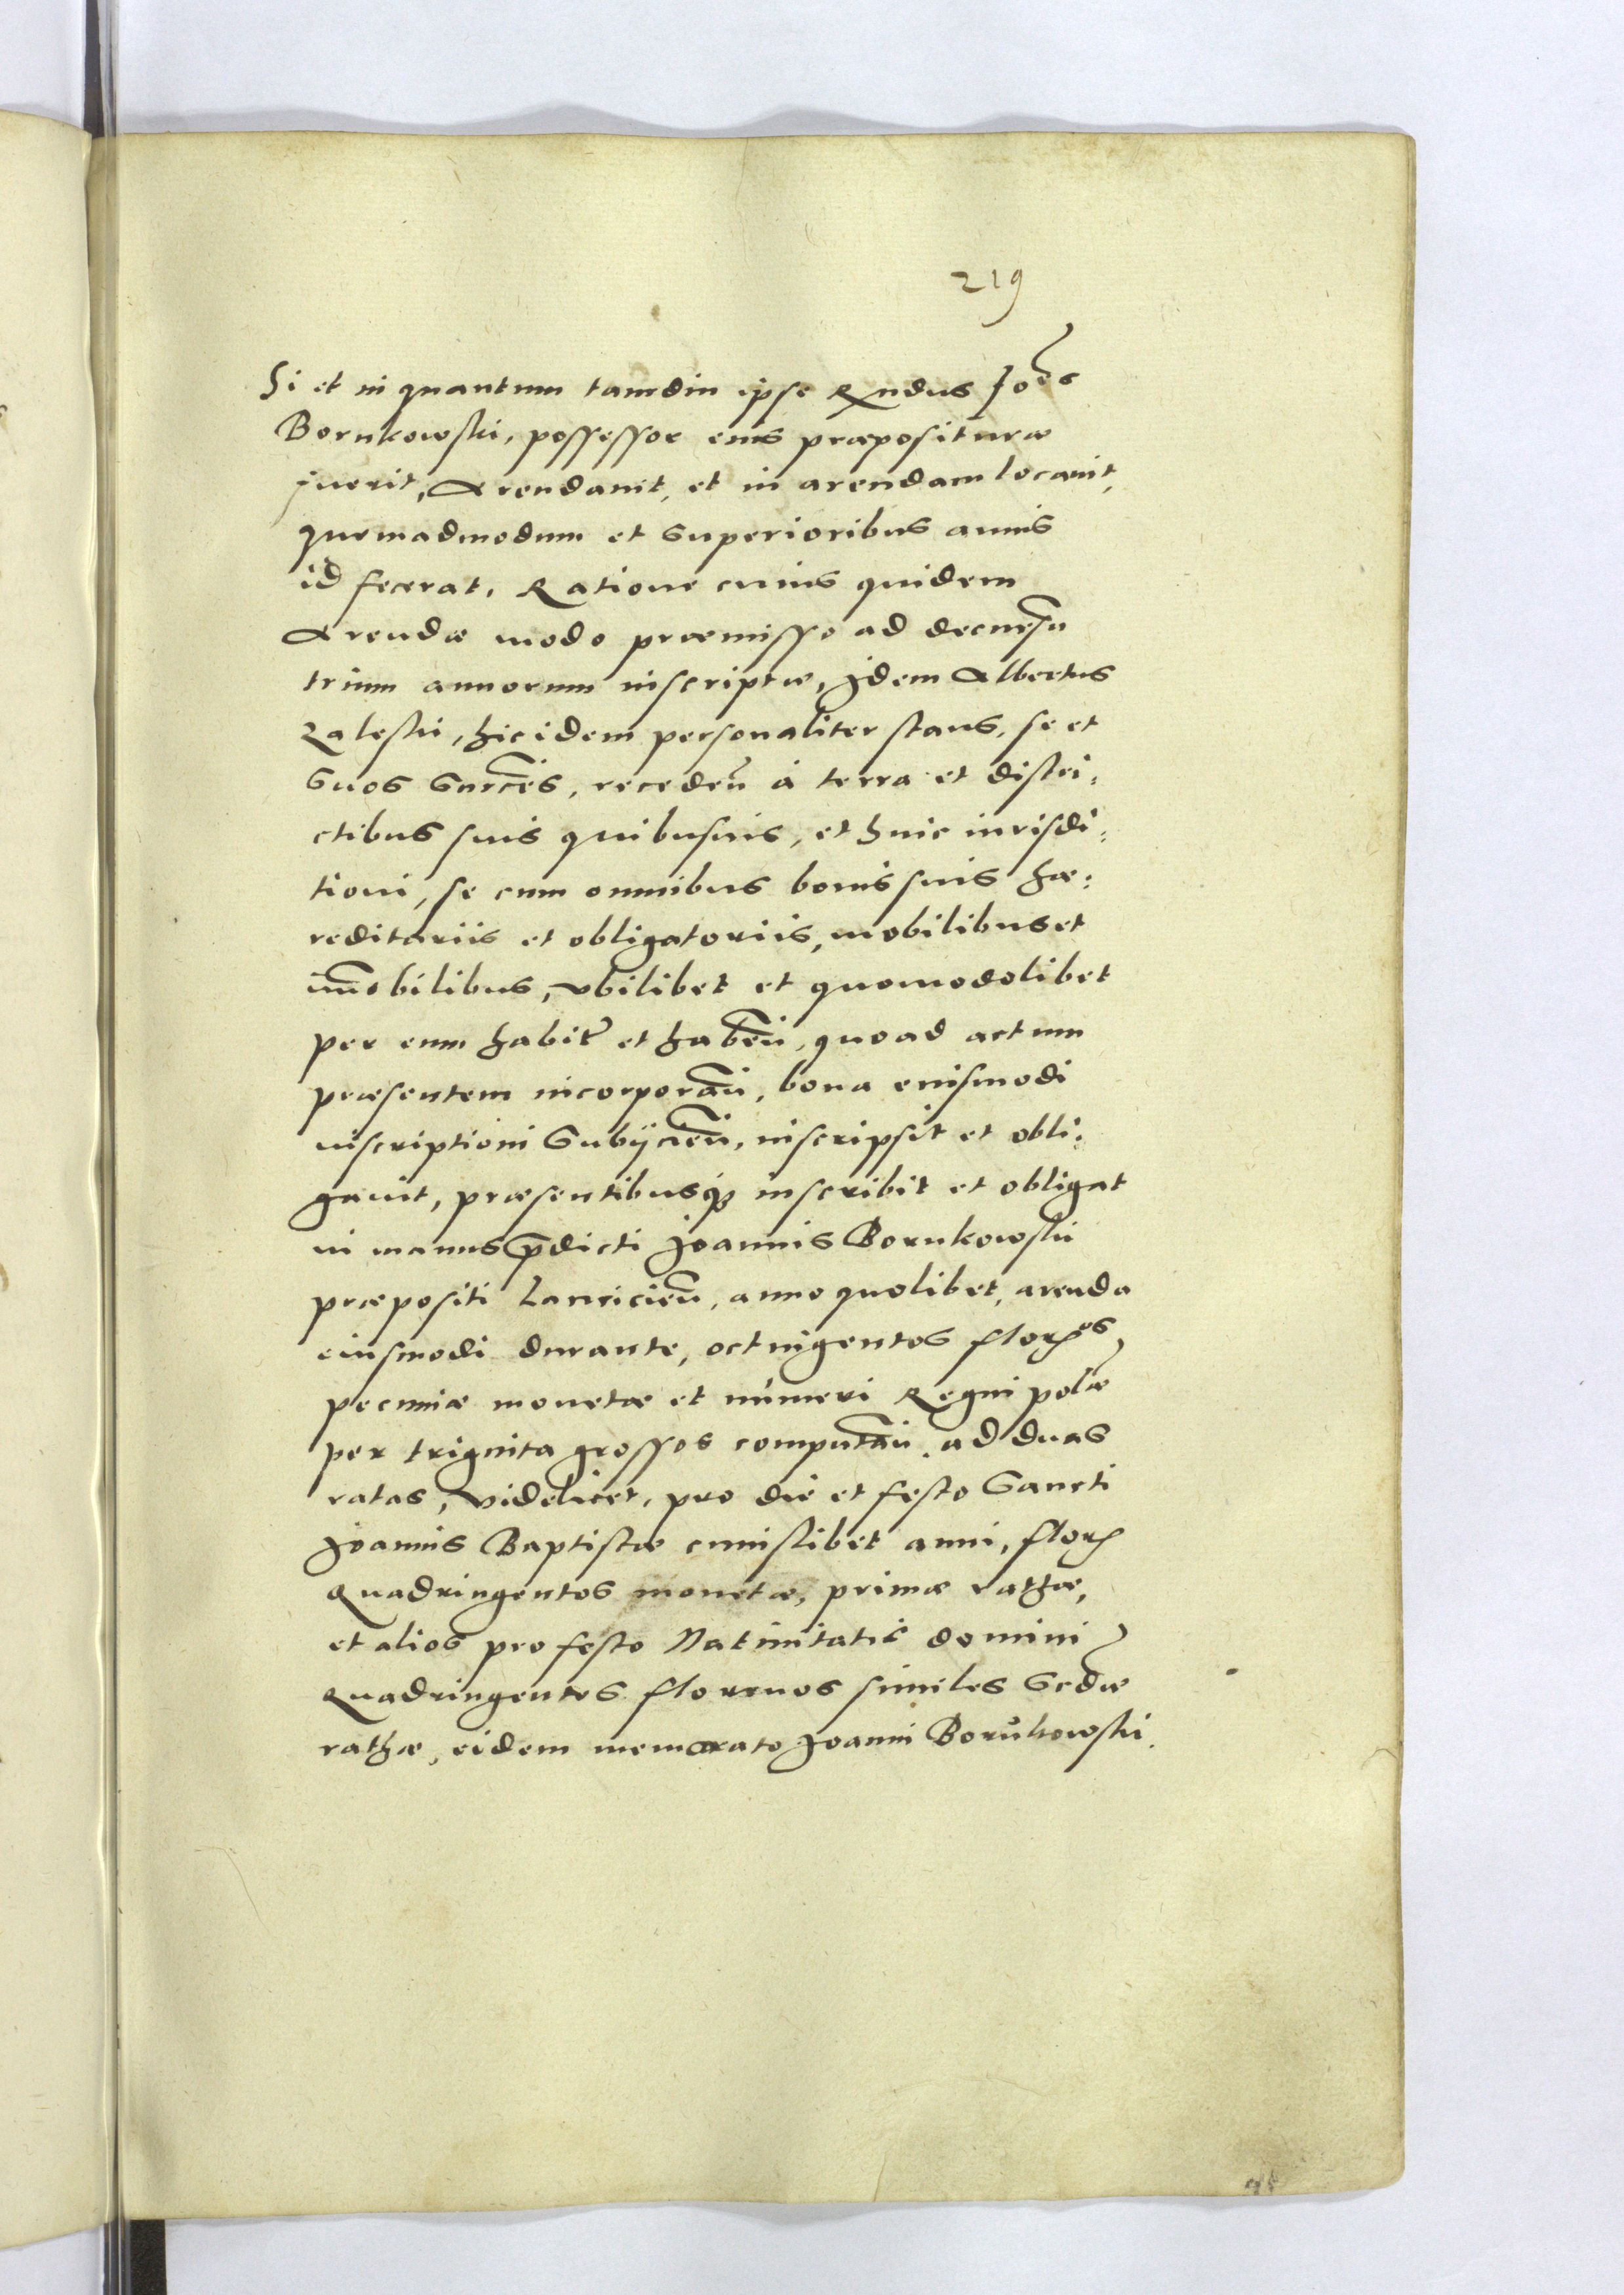 219
Si et in quantum tamdiu ipse Rndus Joes
Borukowski, possessor eius præposituræ
fuerit, Arendauit, et in arendam locauit,
quemadmodum et superioribus annis
id fecerat, Ratione cuius quidem
Arendæ modo præmisso ad decursu
trium annorum inscriptæ, Idem Albertus
Zaleski, hic idem personaliter stans, se et
suos succes, receden à terra et distri:
ctibus suis quibusuis, et huic iurisdi:
tioni, se cum omnibus bonis suis hæ:
reditariis et obligatoriis, mobilibus et
imobilibus, vbilibet et quomodolibet
per eum habit et haben, quoad actum
præsentem incorporan, bona eiusmodi
inscriptioni subijcien, inscripsit et obli:
gauit, præsentibusq inscribit et obligat
in manus pdicti Joannis Borukowski
præpositi Lancicien, anno quolibet, arenda
eiusmodi durante, octuigentos floros
pecuniæ monetæ et numeri Regni polæ
per triginta grossos computan, ad duas
ratas, videlicet, pro die et festo Sancti
Joannis Baptistæ cuiuslibet anni, flor
Quadringentos monetæ, primæ rathæ,
et alios pro festo Natiuitatis domini
Quadringentos florenos similes secdæ
rathæ, eidem memorato Joanni Borukowski.